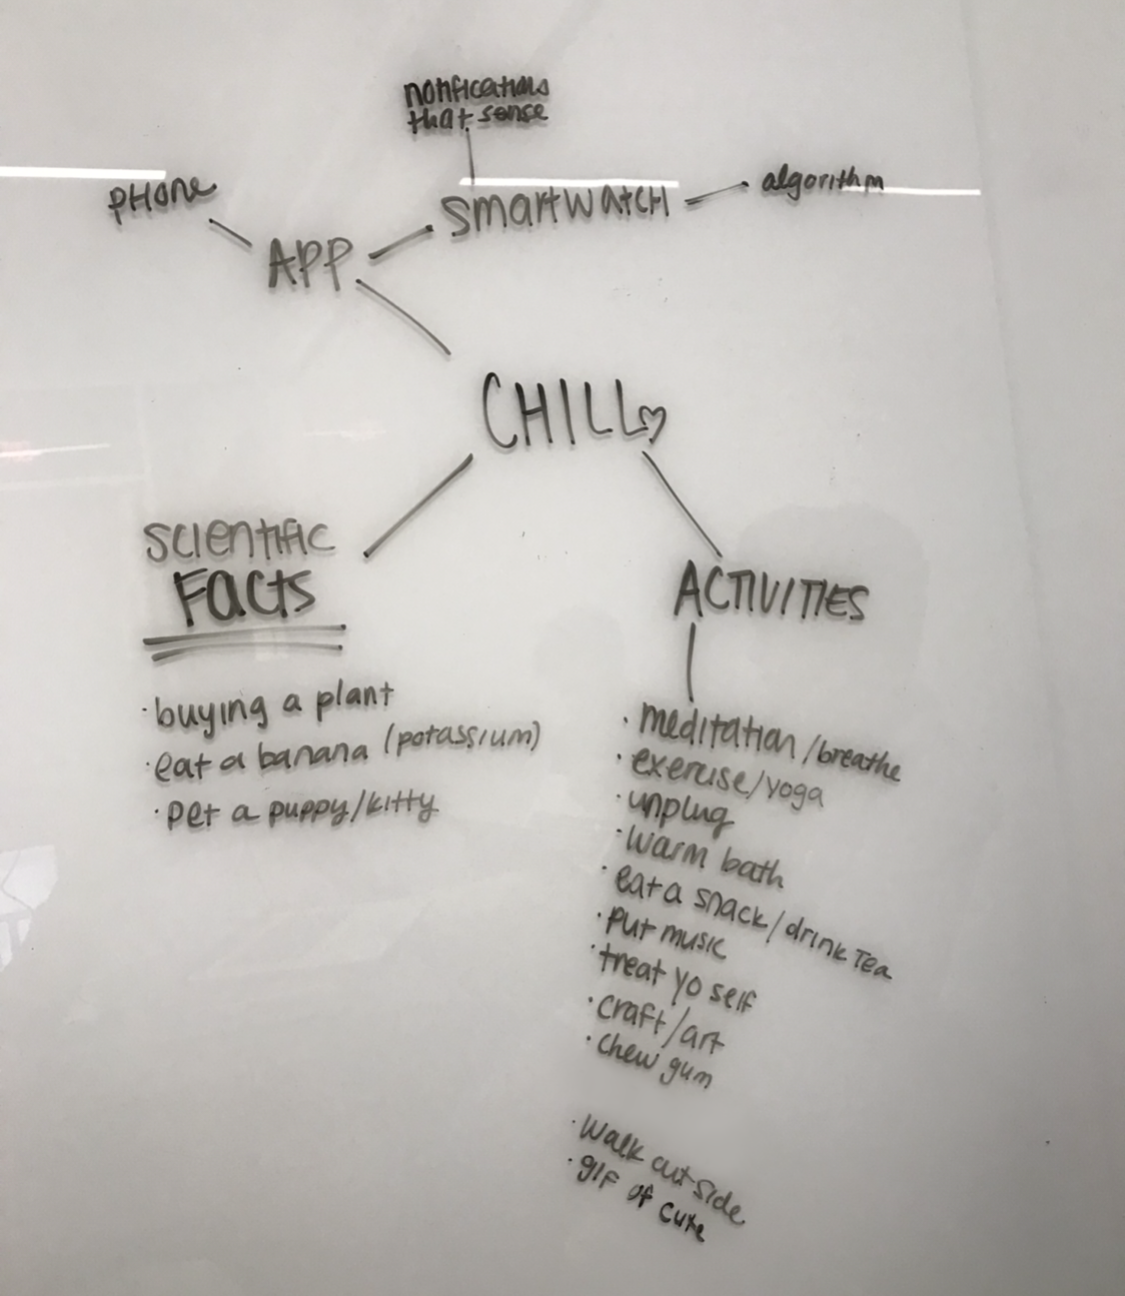 notifications
that sense
PHone
smartwatCH
algorithm
APP
CHILL♡
scientific
Facts
·buying a plant
·eat a banana (potassium)
·pet a puppy/kitty
ACTIVITIES
·meditation/breathe
·exercise/yoga
·unplug
·warm bath
·eat a snack/drink Tea
·put music
·treat yo self
·craft/art
·chew gum
·walk outside
·gif of cute